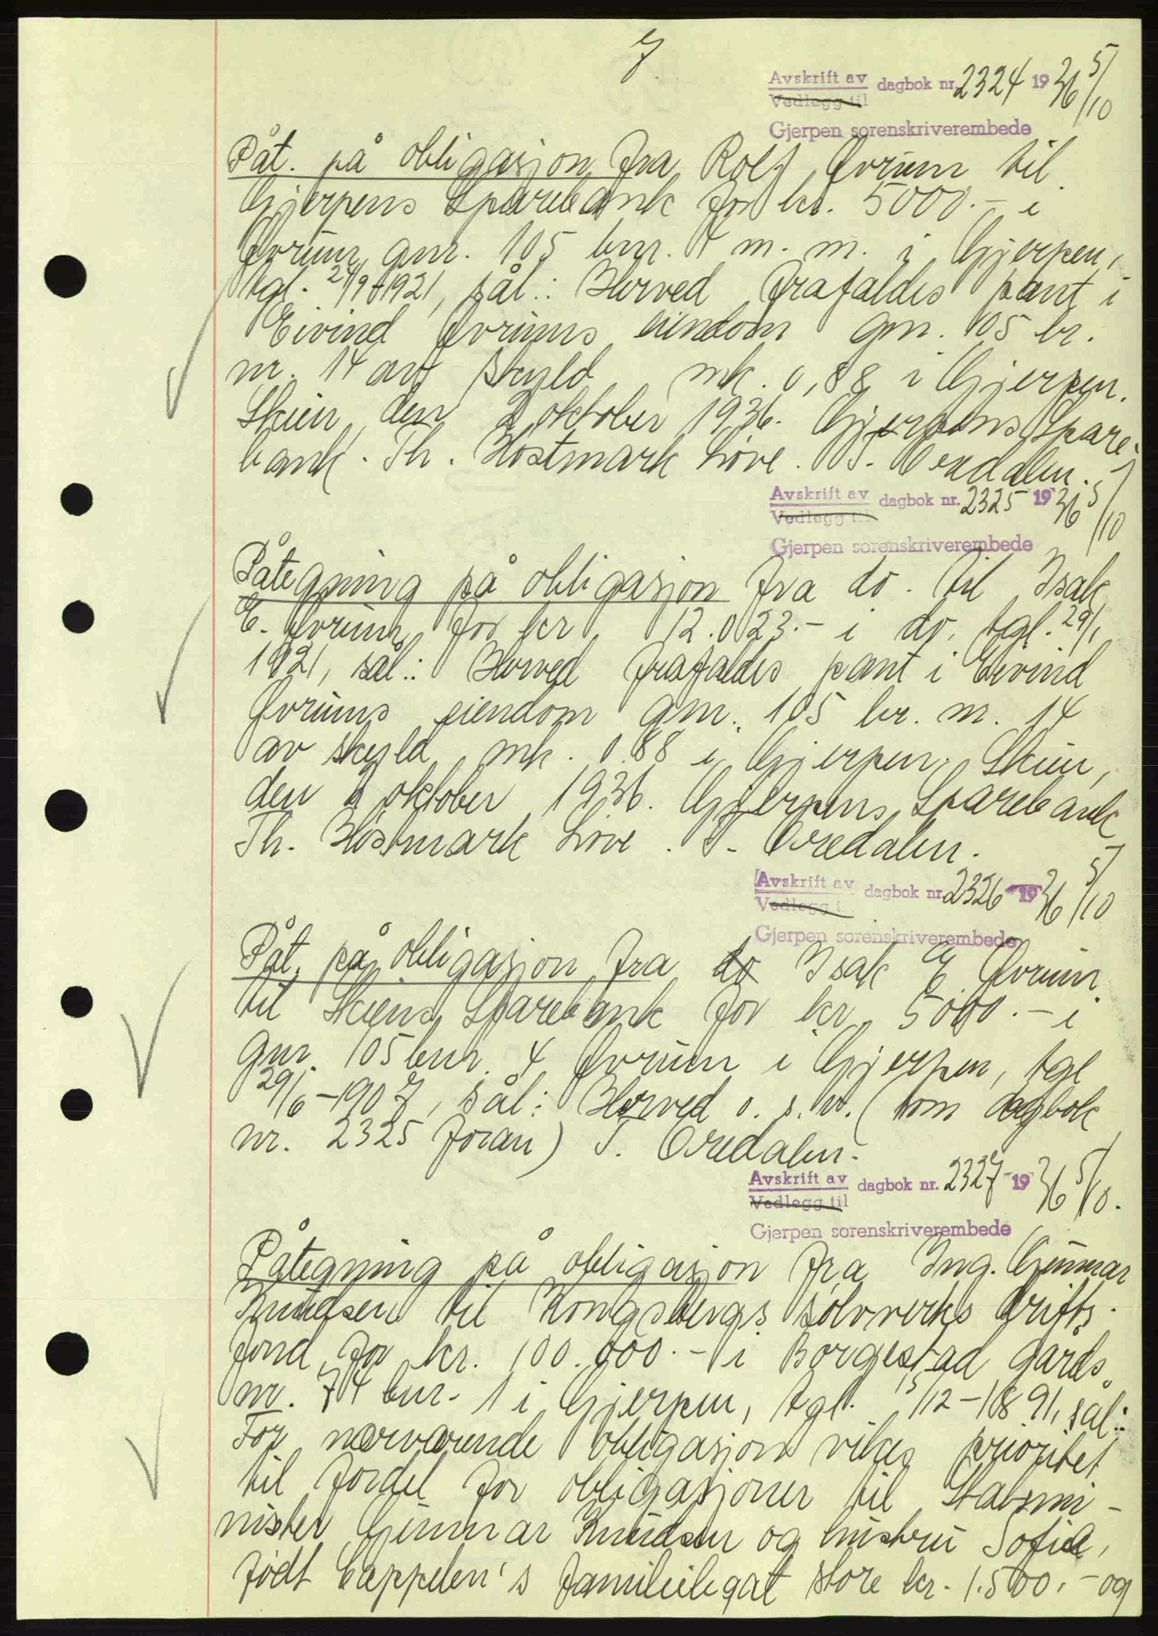 7
Avskrift av dagbok nr. 2324 1936 5/10
Vedlegg til
Gjerpen sorenskriverembede
Påt. på obligasjon fra Rolf Øvrum til
Gjerpens Sparebank for kr. 5000.- i
Øvrum gnr. 105 bnr. 4 m. m. i Gjerpen,
tgl. 1921, sål.: Herved frafaldes pant i
Eivind Øvrums eiendom gnr. 105 br.
nr. 14 av skyld mk. 0,88 i Gjerpen.
Skien den 2 oktober 1936. Gjerpens Spare-
bank. Th. Høstmark Løve. T. Oredalen.
Avskrift av dagbok nr. 2325 1936 5/10
Vedlegg til
Gjerpen sorenskriverembede
Påtegning på obligasjon fra do. til Isak
E. Øvrum for kr 12.023.- i do. tgl. 29/1
1921, sål.: Herved frafaldes pant i Eivind
Øvrums eiendom gnr. 105 br. nr. 14
av skyld mk. 0.88 i Gjerpen. Skien,
den 2 oktober 1936. Gjerpens Sparebank
Th. Høstmark Løve. T. Oredalen.
Avskrift av dagbok nr. 2326 1936 5/10
Vedlegg t
Gjerpen sorenskriverembede
Påt. på obligasjon fra do Isak E. Øvrum
til Skiens Sparebank for kr. 5000.- i
gnr. 105 bnr. 4 Øvrum i Gjerpen, tgl
29/6-1907, sål: Herved o. s. v. (som dagbok
nr. 2325 foran) T. Oredalen.
Avskrift av dagbok nr. 2327 1936 5/10.
Vedlegg til
Gjerpen sorenskriverembede
Påtegning på obligasjon fra Ing. Gunnar
Knudsen til Kongsbergs sølvverks drifts-
fond for kr. 100.000.- i Borgestad gårds
nr. 74 bnr. 1 i Gjerpen, tgl. 15/12-1891, sål:
For nærværende obligasjon vikes prioritet
til fordel for obligasjoner til Statsmi-
nister Gunnar Knudsen og hustru Sofie,
født Cappelen's familielegat store kr. 1.500.- og